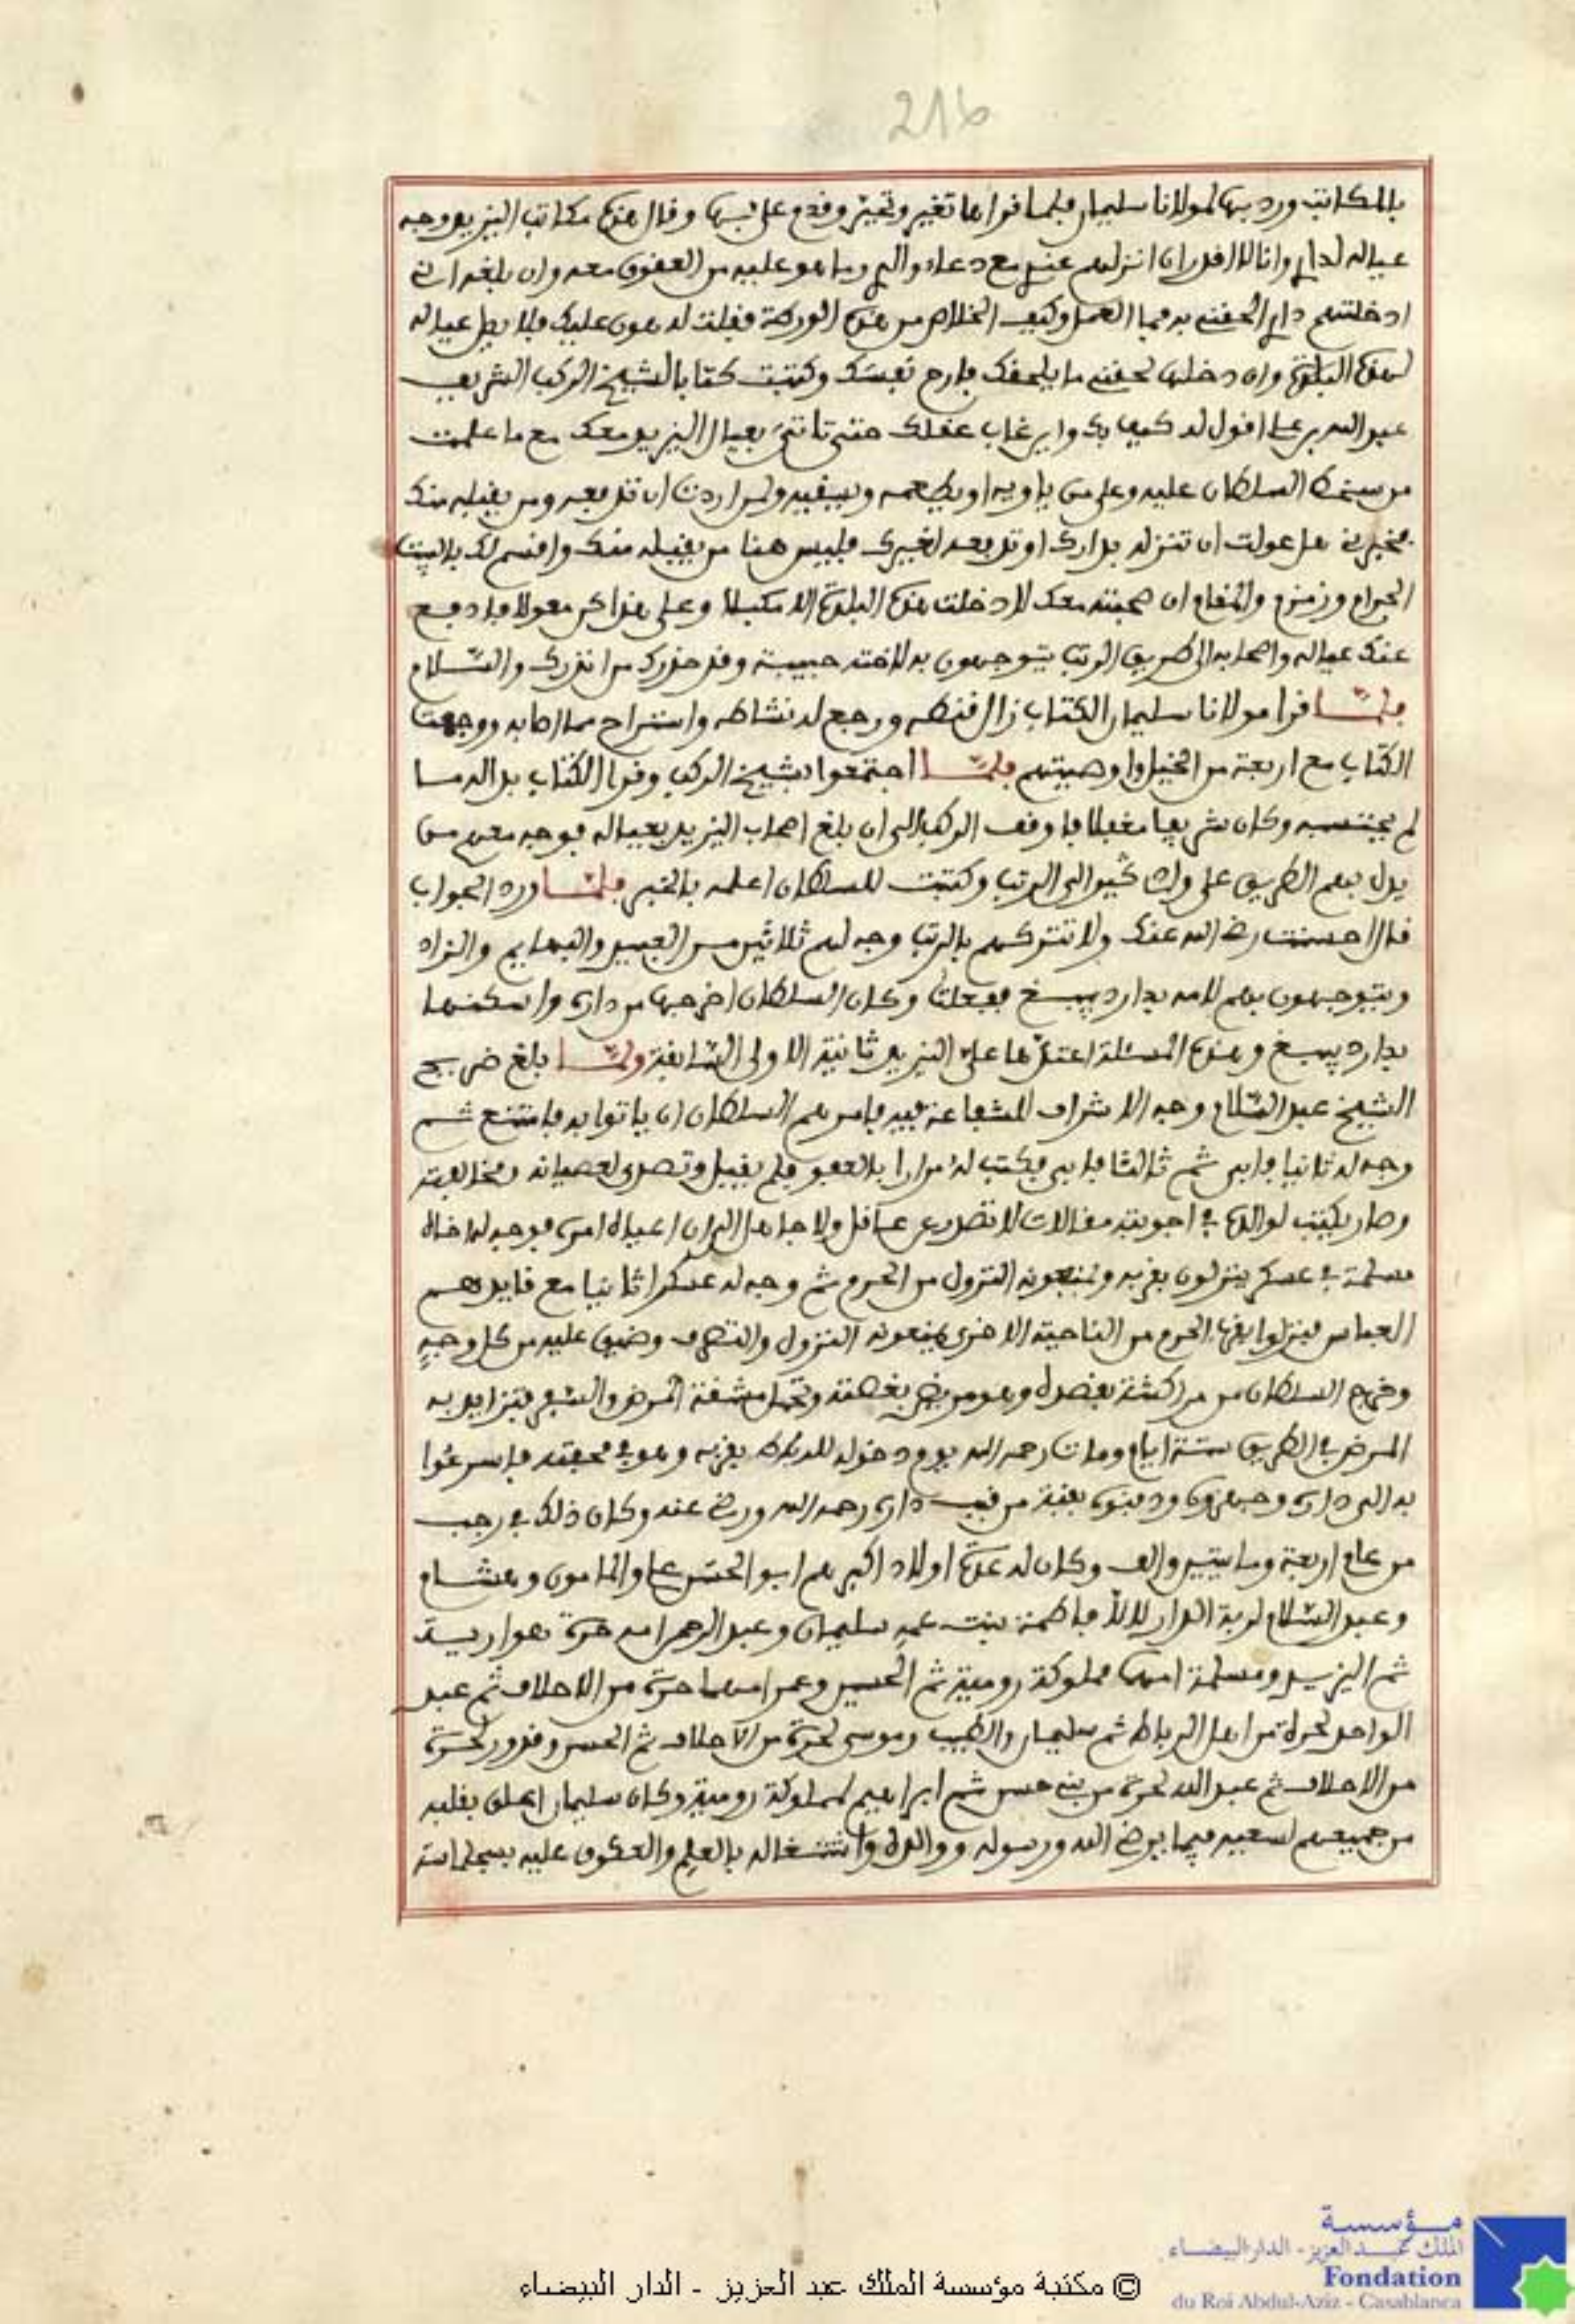 216
بالمكاتب ورد بها لمولانا سليمان فلما قراها تغير وتحير وقدم على بها وقال هذه مكاتب اليزيد وجه
عياله لداري وانا لا اقدر ان انزلهم عندي مع دعاء والدي وما هو عليه من العقوق معه وان بلغه اني
ادخلتهم داري الحقني به فما العمل وكيف الخلاص من هذه الورطة فقلت له هون عليك فلا يصل عياله
لهذه البلدة وان دخلها لحقني ما يلحقك فارح نفسك وكتبت كتابا لشيخ الركب الشريف
عبد الله بن علي اقول له كيف بك واين غاب عقلك حتى تاتي بعيال اليزيد معك مع ما علمت
من سخط السلطان عليه وعلى من ياويه او يطعمه ويسقيه ولمن اردت ان تدفعه ومن يقبله منك
فخبرني هل عولت ان تنزله بدارك او تدفعه لغيرك فليس هنا من يقبله منك واقسم لك بالبيت
الحرام وزمزم والمقام ان صحبته معك لا دخلت هذه البلدة الا مكبلا وعلى هذا كن معولا فادفع
عنك عياله واصحابه الى طريق الرتب يتوجهون به لاخته حبيبة وقد حذرك من انذرك والسلام
فلما قرا مولانا سليمان الكتاب زال قنطه ورجع له نشاطه واستراح مما اصابه ووجهت
الكتاب مع اربعة من الخيل واوصيتهم فلما اجتمعوا بشيخ الركب وقرا الكتاب بدا له ما
لم يحتسبه وكان شريفا مغفلا فاوقف الركب الى ان بلغ اصحاب اليزيد بعياله فوجه معهم من
يدل بهم الطريق على واد كير الى الرتب وكتبت للسلطان اعلمه بالخبر فلما ورد الجواب
قال احسنت رضي الله عنك ولا تتركهم بالرتب وجه لهم ثلاثين من العبيد والبهايم والزاد
ويتوجهون بهم لامه بدار دبيبغ ففعلت وكان السلطان اخرجها من داره واسكنها
بدار دبيبغ وهذه المسئلة اعتدها علي اليزيد ثانية الاولى السابقة ولما بلغ ضريح
الشيخ عبد السلام وجه الاشراف للشفاعة فيه فامرهم السلطان ان ياتوا به فامتنع ثم
وجه له ثانيا فابى ثم ثالثا فابى فكتب له مرارا بالعفو فلم يقبل وتصدى لعصيانه ومخالفته
وصار يكتب لوالده في اجوبته مقالات لا تصدر عن عاقل ولا جاهل الى ان اعياه امره فوجه له اخاه
مسلمة في عسكر ينزلون بقربه ويمنعونه النزول من الحرم ثم وجه له عسكرا ثانيا مع قايدهم
العباس فينزلوا بقرب الحرم من الناحية الاخرى يمنعونه النزول والتصرف وضيق عليه من كل وجه
وخرج السلطان من مراكشة بقصده وهو مريض بغصته وتحمل مشقة المرض والسفر فتزايد به
المرض في الطريق ستة ايام ومات رحمه الله يوم دخوله للرباط بقربه وهو في محفته فاسرعوا
به الى داره وجهزوه ودفنوه بقبة من قبب داره رحمه الله ورضي عنه وكان ذلك في رجب
من عام اربعة ومايتين والف وكان له عدة اولاد اكبرهم ابو الحسن علي والمامون وهشام
وعبد السلام لربة الدار للا فاطمة بنت عمه سليمان وعبد الرحمن امه حرة هوارية
ثم اليزيد ومسلمة امهما مملوكة رومية ثم الحسين وعمر امهما حرة من الاحلاف ثم عبد
الواحد لحرة من اهل الرباط ثم سليمان والطيب وموسى لحرة من الاحلاف ثم الحسن وقدور لحرة
من الاحلاف ثم عبد الله لحرة من بني حسن ثم ابراهيم لمملوكة رومية وكان سليمان اعلق بقلبه
من جميعهم لسعيه فيما يرضي الله ورسوله ووالده واشتغاله بالعلم والعكوف عليه بسجلماسة
مؤسسة
الملك عبد العزيز - الدار البيضاء
Fondation
du Roi Abdul-Aziz - Casablanca
© مكتبة مؤسسة الملك عبد العزيز - الدار البيضاء